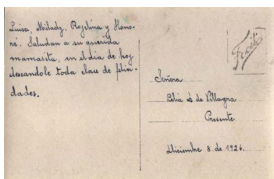 Luisa, Milady, Rogelina y Hono-
ré. Saludan a su querida
mamasita, en el dia de hoy
deseandole toda clase de felici-
dades.
Señora
de Villagra
Presente
Diciembre 8 de 1926.